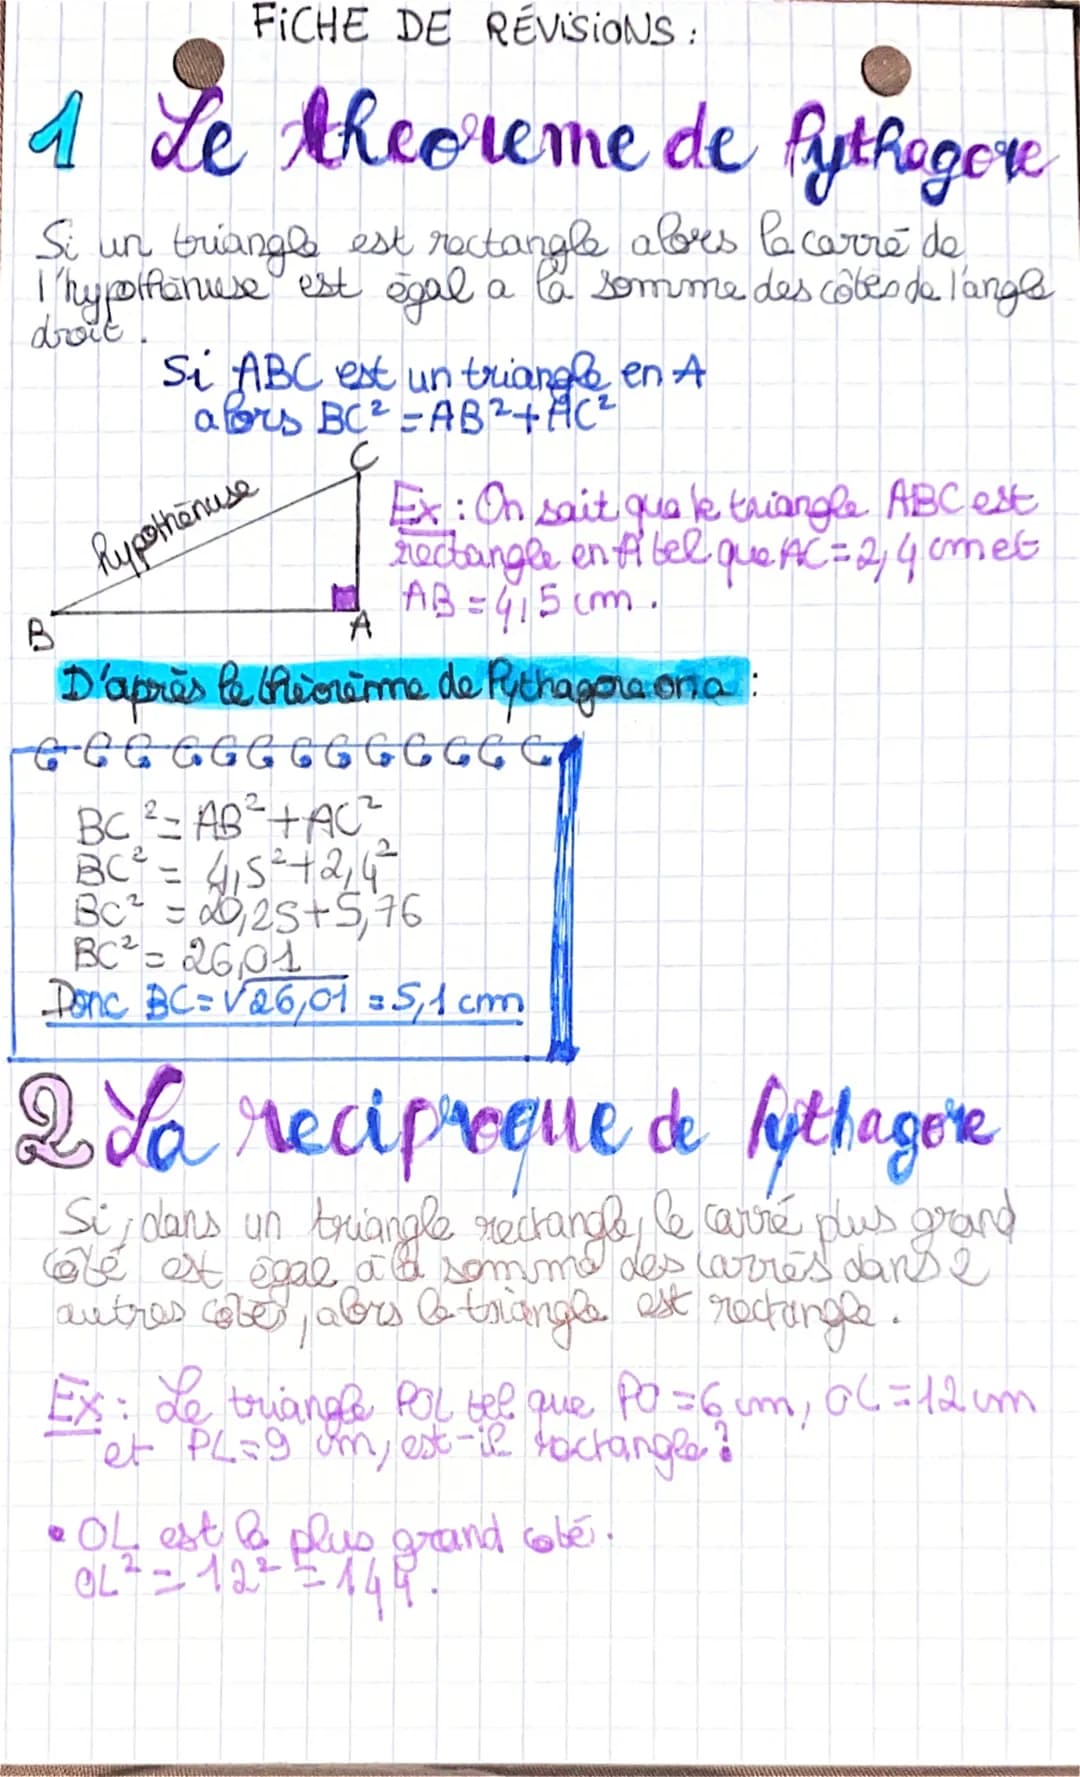 FiCHE DE RÉVISIONS :
1 Le theoreme de Pythagore
Si un triangle est rectangle alors le carré de
l'hypothénuse est égal a la somme des côtés de l'angle
droit.
Si ABC est un triangle en A
alors BC² = AB² + AC²
C
hypothénuse
B
A
Ex : On sait que le triangle ABC est
rectangle en A tel que AC = 2,4 cm et
AB = 4,5 cm.
D'après le théorème de Pythagore on a :
BC² = AB² + AC²
BC² = 4,5² + 2,4²
BC² = 20,25 + 5,76
BC² = 26,01
Donc BC = √26,01 = 5,1 cm
2 La reciproque de Pythagore
Si, dans un triangle rectangle, le carré plus grand
côté est égal à la somme des carrés dans 2
autres côtés, alors le triangle est rectangle.
Ex : Le triangle POL tel que PO = 6 cm, OL = 12 cm
et PL = 9 cm, est-il rectangle ?
• OL est le plus grand coté.
OL² = 12² = 144.